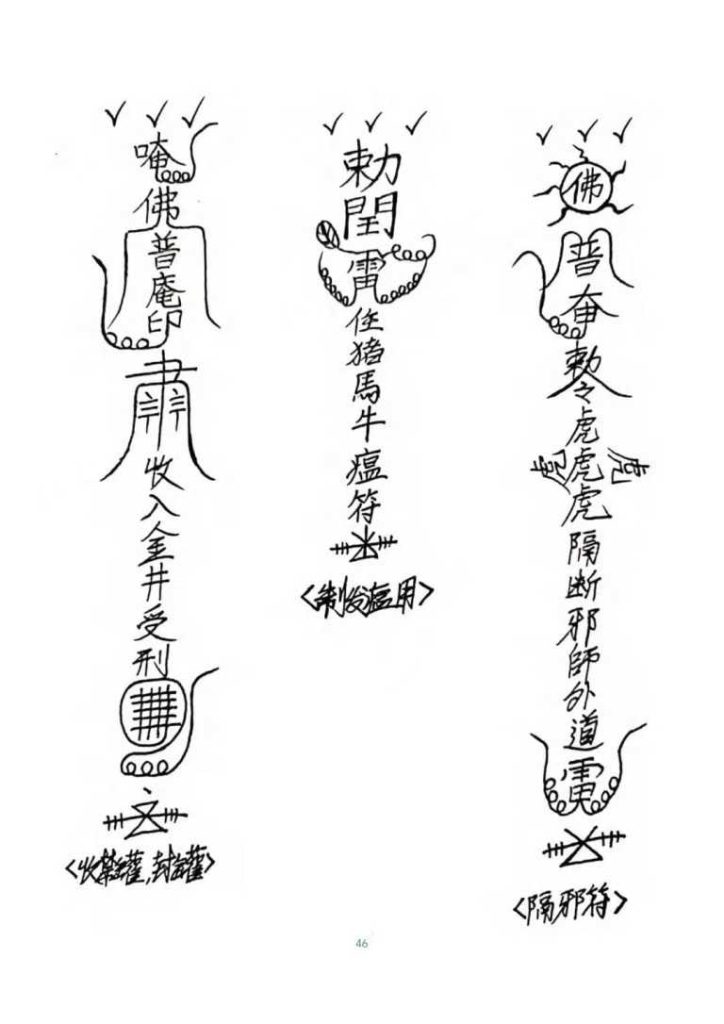 唵
佛
普庵印
收入金井受刑
<收禁罐,封罐>
勅
閏
雷
任猪馬牛瘟符
<制發瘟用>
佛
普
奄
勅令
虎虎虎
虎
隔断邪師外道
雷
<隔邪符>
46